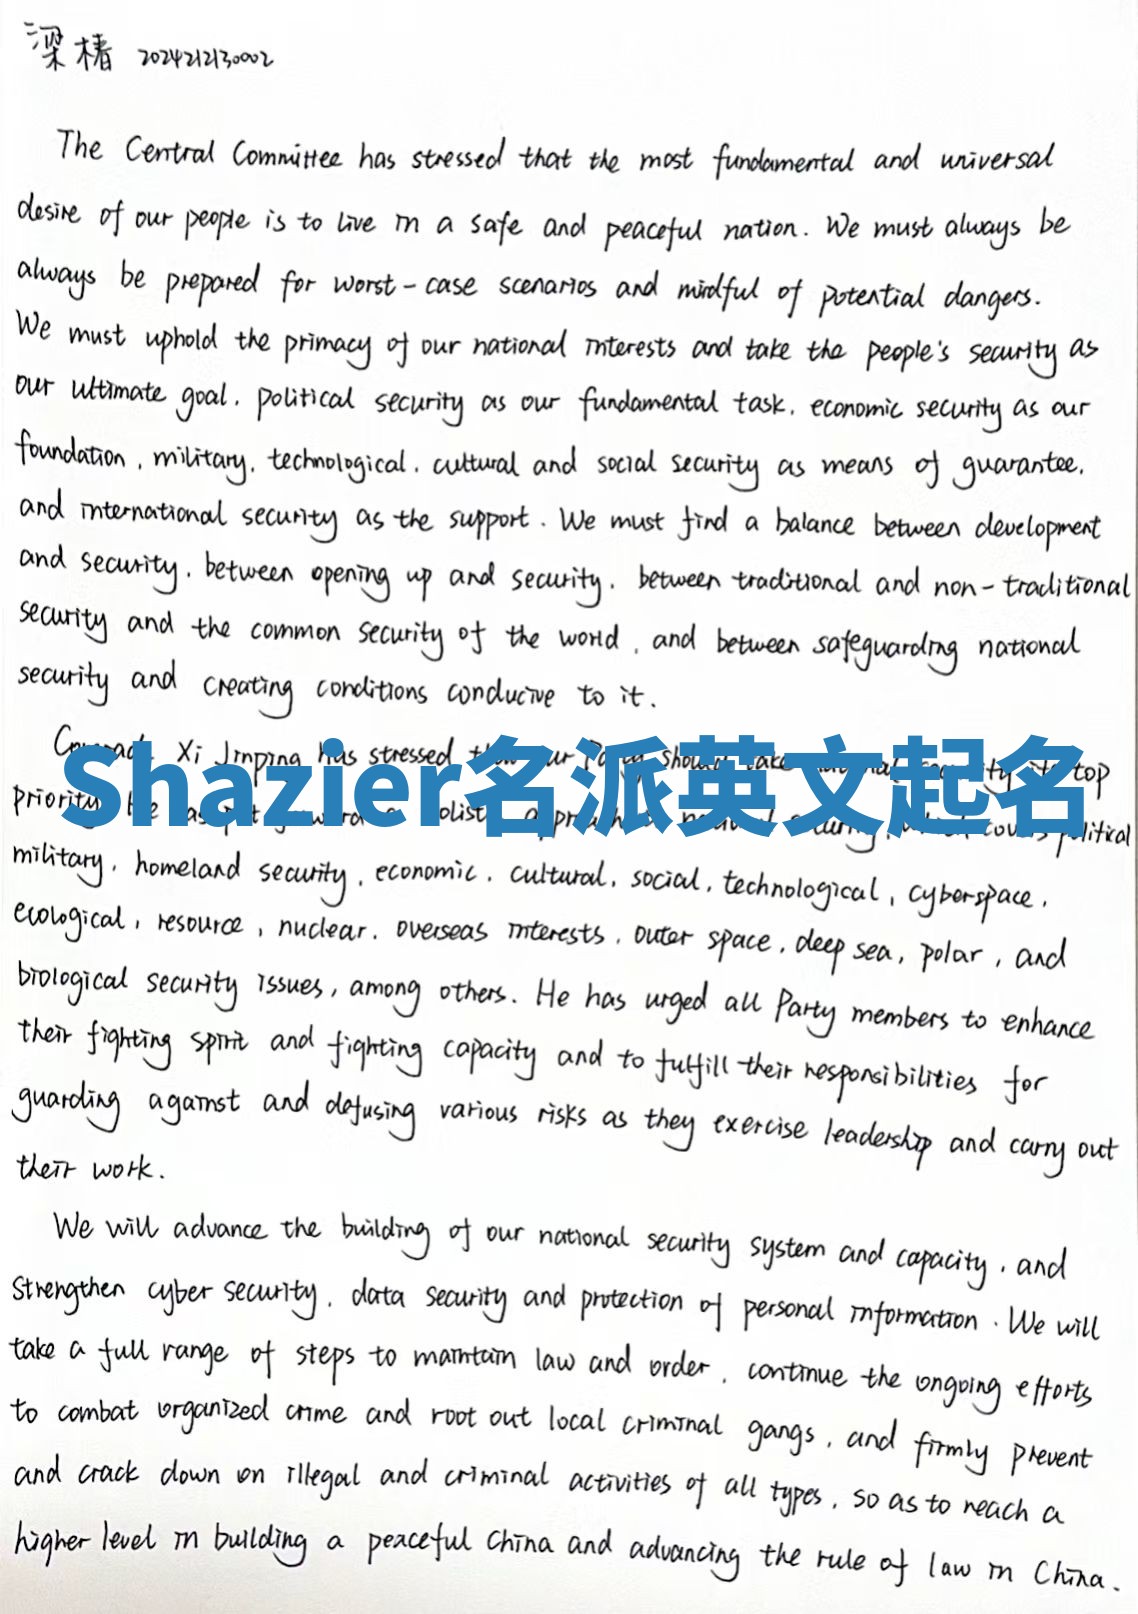 梁椿 2024212130002
The Central Committee has stressed that the most fundamental and universal
desire of our people is to live in a safe and peaceful nation. We must always be
always be prepared for worst-case scenarios and mindful of potential dangers.
We must uphold the primacy of our national interests and take the people's security as
our ultimate goal, political security as our fundamental task, economic security as our
foundation, military, technological, cultural and social security as means of guarantee,
and international security as the support. We must find a balance between development
and security, between opening up and security, between traditional and non-traditional
security and the common security of the world, and between safeguarding national
security and creating conditions conducive to it.
Xi Jinping has stressed our Party should take top
Shazier名派英文起名
priority. He political
military, homeland security, economic, cultural, social, technological, cyberspace,
ecological, resource, nuclear, overseas interests, outer space, deep sea, polar, and
biological security issues, among others. He has urged all Party members to enhance
their fighting spirit and fighting capacity and to fulfill their responsibilities for
guarding against and defusing various risks as they exercise leadership and carry out
their work.
We will advance the building of our national security system and capacity, and
strengthen cyber security, data security and protection of personal information. We will
take a full range of steps to maintain law and order, continue the ongoing efforts
to combat organized crime and root out local criminal gangs, and firmly prevent
and crack down on illegal and criminal activities of all types, so as to reach a
higher level in building a peaceful China and advancing the rule of law in China.